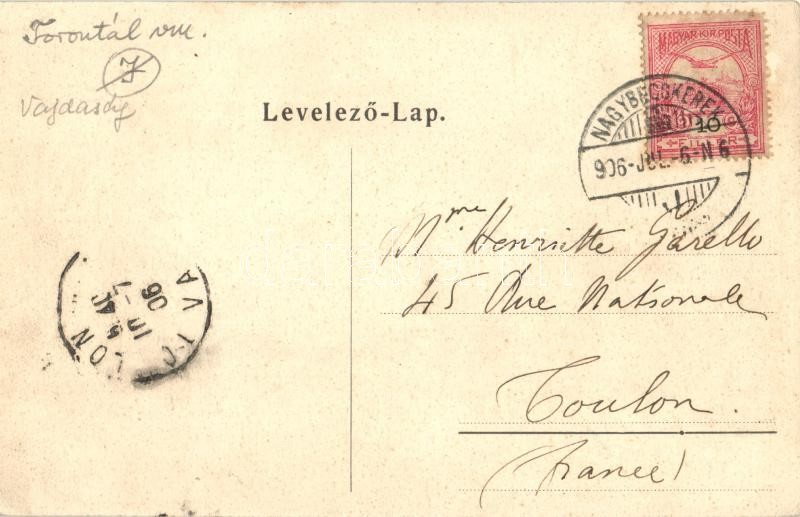 Torontál vm.
J
Vajdaság
Levelező-Lap.
MAGYAR KIR. POSTA
10
FILLÉR
NAGYBECSKEREK
906-JUL.-6.-N 6
Mme Henriette Garello
45 Rue Nationale
Toulon.
(France)
TOULON VAR
5 40
10 -7
06